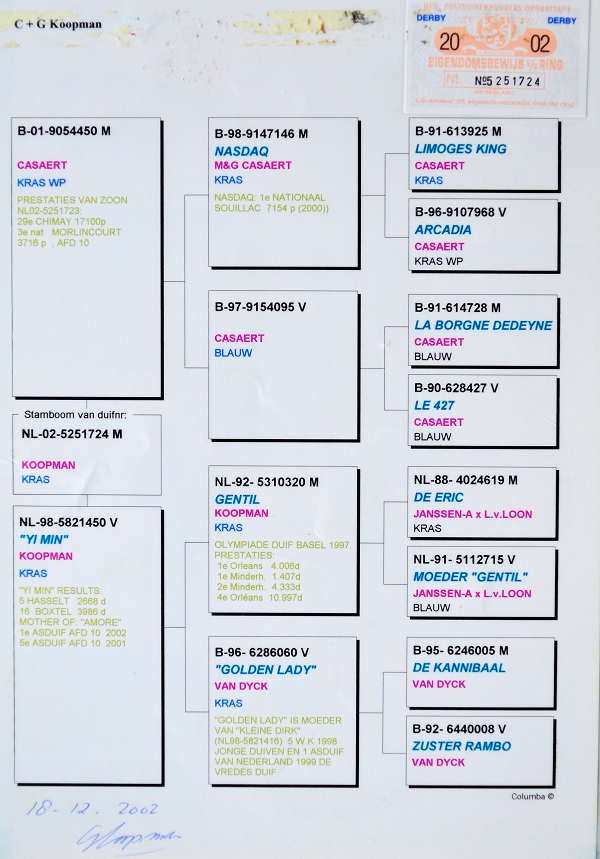 C + G Koopman
DERBY
DERBY
20 02
EIGENDOMSBEWIJS RING
No. No5251724
B-01-9054450 M
CASAERT
KRAS WP
PRESTATIES VAN ZOON
NL02-5251723:
29e CHIMAY 17100p
3e nat MORLINCOURT
3716 p , AFD 10
Stamboom van duifnr:
NL-02-5251724 M
KOOPMAN
KRAS
NL-98-5821450 V
"YI MIN"
KOOPMAN
KRAS
"YI MIN" RESULTS:
5 HASSELT 2668 d
16 BOXTEL 3986 d
MOTHER OF: "AMORE"
1e ASDUIF AFD 10 2002
5e ASDUIF AFD 10 2001
B-98-9147146 M
NASDAQ
M&G CASAERT
KRAS
NASDAQ: 1e NATIONAAL
SOUILLAC 7154 p (2000))
B-97-9154095 V
CASAERT
BLAUW
NL-92- 5310320 M
GENTIL
KOOPMAN
KRAS
OLYMPIADE DUIF BASEL 1997
PRESTATIES:
1e Orleans 4.006d
1e Minderh. 1.407d
2e Minderh. 4.333d
4e Orléans 10.997d
B-96- 6286060 V
"GOLDEN LADY"
VAN DYCK
KRAS
"GOLDEN LADY" IS MOEDER
VAN "KLEINE DIRK"
(NL98-5821416) 5 W.K 1998
JONGE DUIVEN EN 1 ASDUIF
VAN NEDERLAND 1999 DE
VREDES DUIF
B-91-613925 M
LIMOGES KING
CASAERT
KRAS
B-96-9107968 V
ARCADIA
CASAERT
KRAS WP
B-91-614728 M
LA BORGNE DEDEYNE
CASAERT
BLAUW
B-90-628427 V
LE 427
CASAERT
BLAUW
NL-88- 4024619 M
DE ERIC
JANSSEN-A x L.v.LOON
KRAS
NL-91- 5112715 V
MOEDER "GENTIL"
JANSSEN-A x L.v.LOON
BLAUW
B-95- 6246005 M
DE KANNIBAAL
VAN DYCK
B-92- 6440008 V
ZUSTER RAMBO
VAN DYCK
Columba ©
18-12. 2002
GKoopman